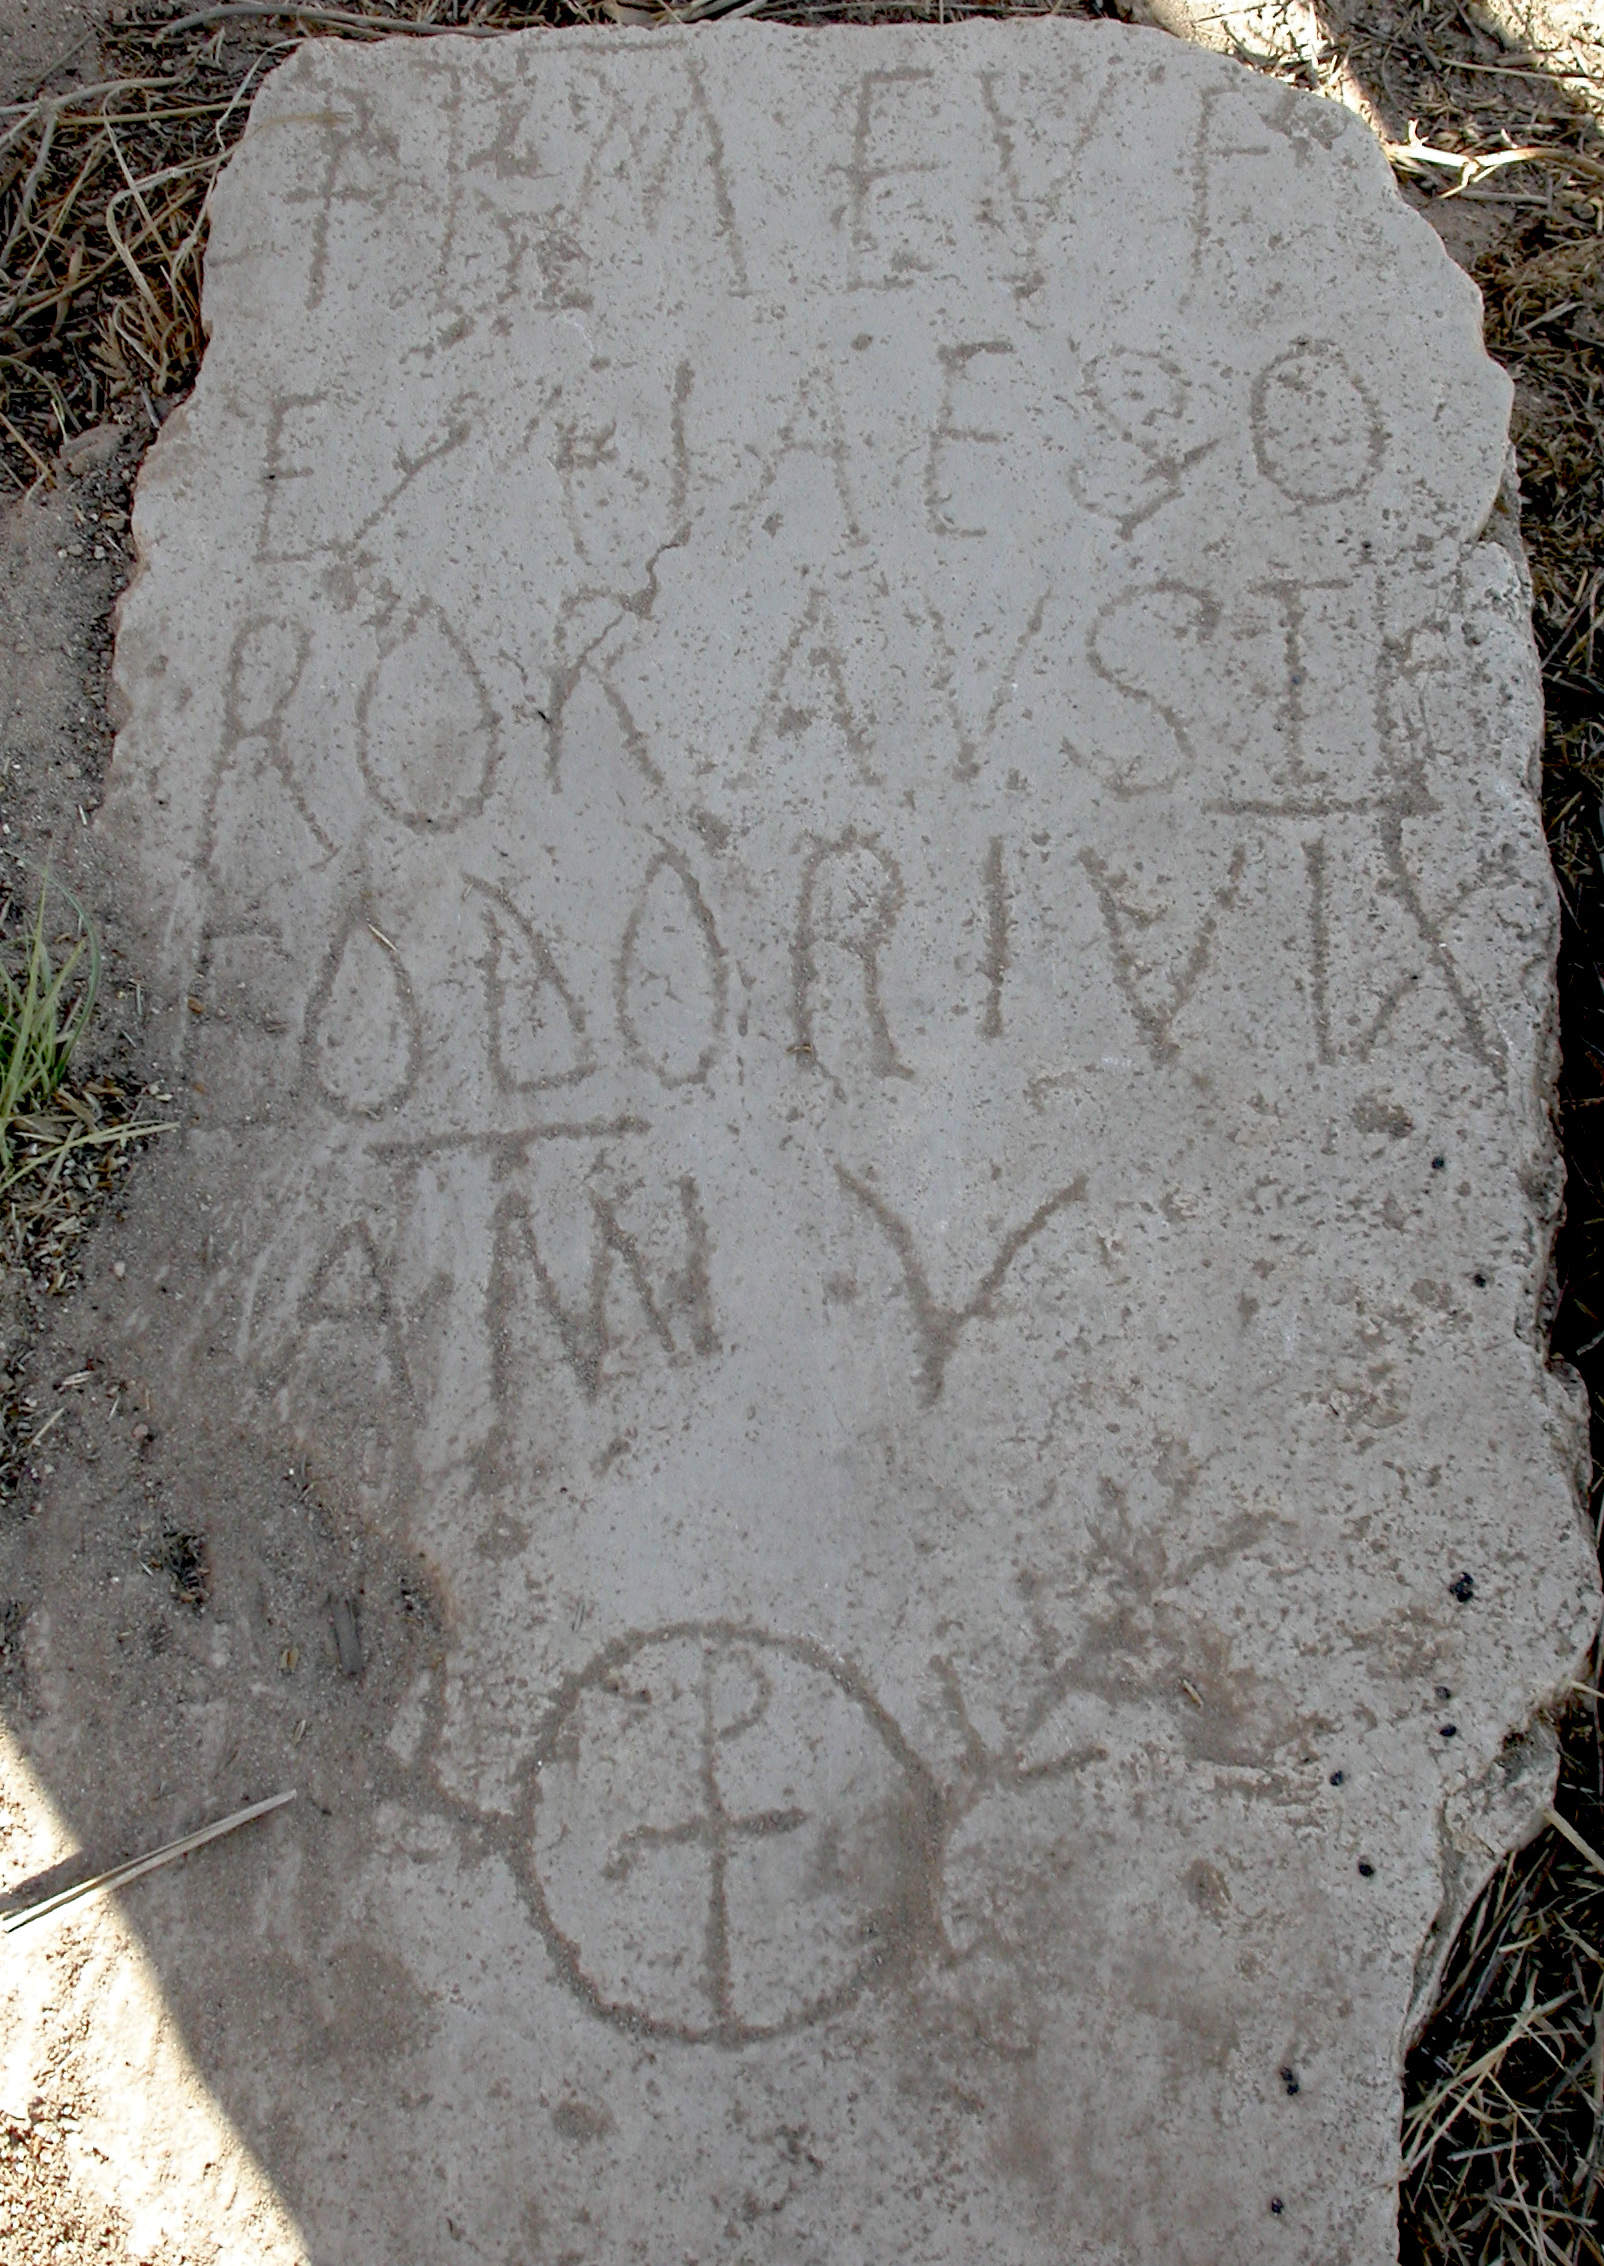 ⳨ BM EVF
EMIAE SO
ROR AVSTE
ODORI VIX
ANN V
⳨